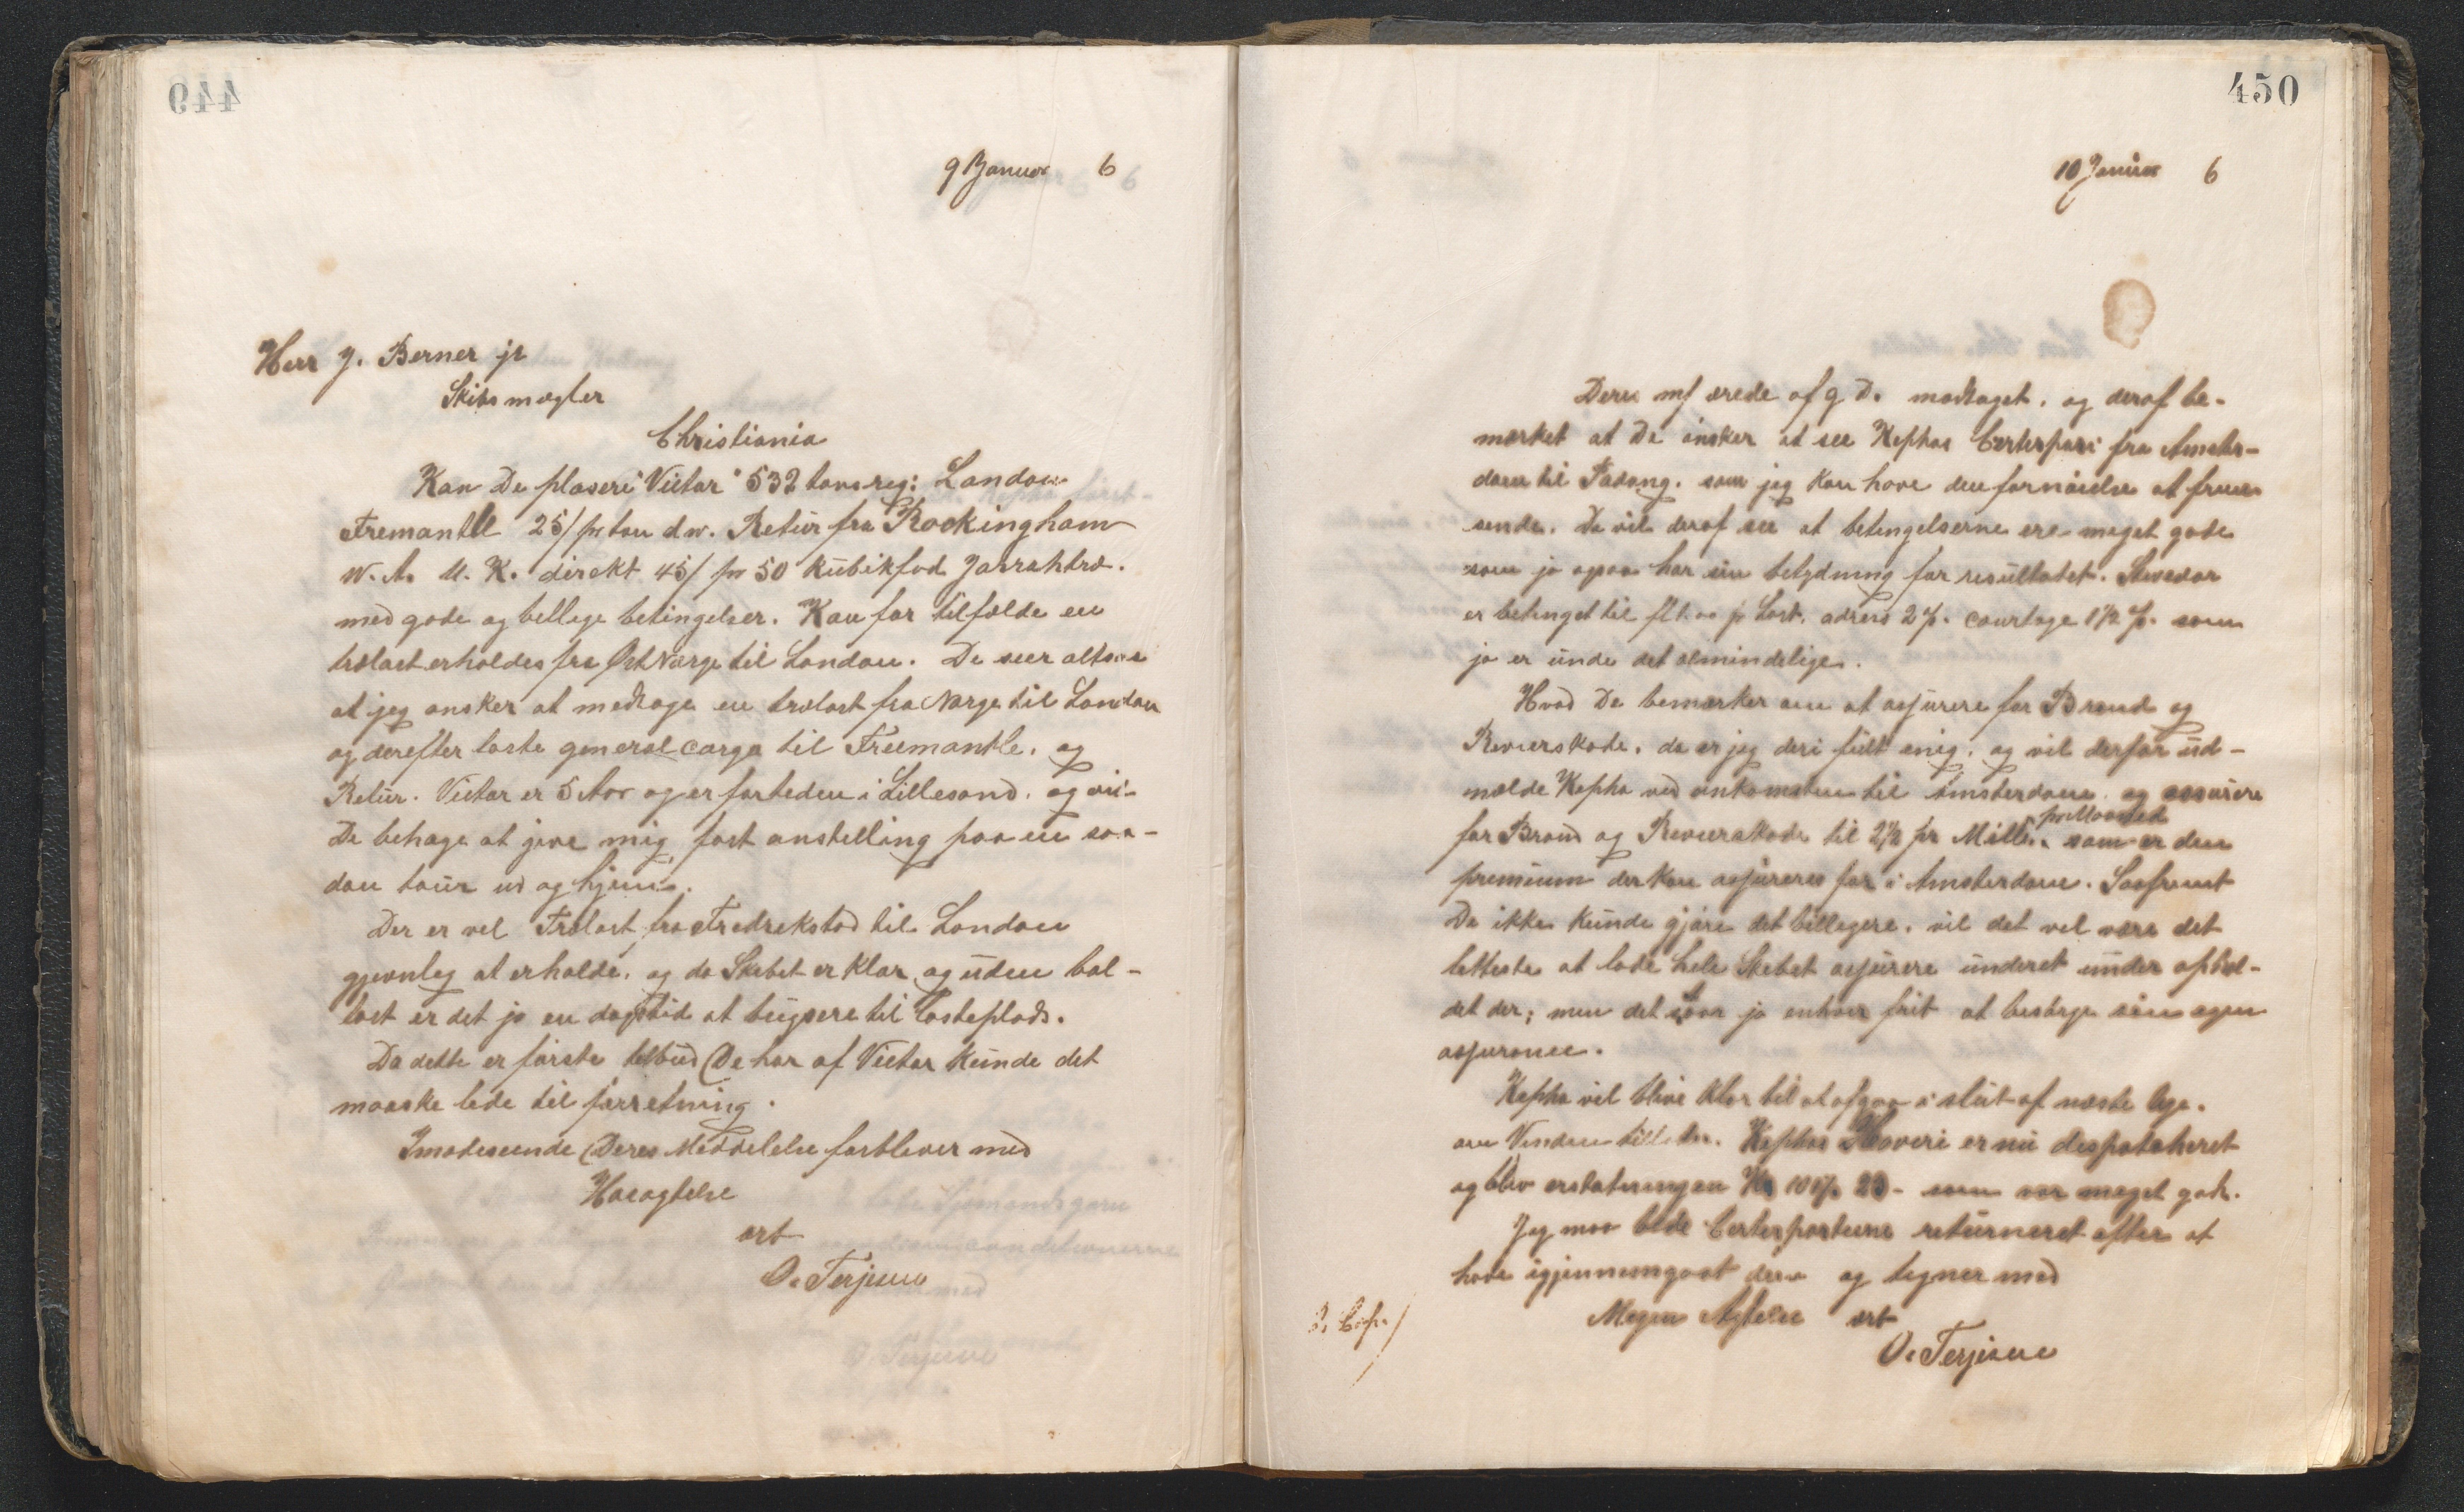 449
9 Januar 6
Herr J. Berner jr
Skibsmægler
Christiania
Kan De placere Victor 532 tons reg: London
Fremantle 25/ pr ton dw. Retur fra Rockingham
W. A. U. K. direkt 45/ pr 50 Kubikfod Jarrahtræ.
med gode og bellige betingelser. Kan for tilfælde en
trælast erholdes fra Øst Norge til London. De seer altsaa
at jeg ønsker at medtage en trælast fra Norge til London
og derefter laste general cargo til Freemantle. og
Retur. Victor er 5 Aar og er fortiden i Lillesand. og vil
De behage at give mig fast anstelling paa en saa-
dan tour ud og hjem.
Der er vel Trælast fra Fredrekstad til London
gjevnleg at erholde, og da Skibet er klar og uden bal-
last er det jo en dagstid at bugsere til lasteplads.
Da dette er første tilbud De har af Victor kunde det
maaske lede til forretning.
Imødeseende Deres Meddelelse forbliver med
Høiagtelse
ært
O. Terjesen
450
10 Januar 6
Deres m/ ærede af 9 D. modtaget. og deraf be-
mærket at De ønsker at see Kephas Certeparti fra Amster-
dam til Padang. som jeg kan have den fornøielse at frem
sende. De vil deraf see at betingelserne ere meget gode
som jo ogsaa har sin betydning for resultatet. Stevedor
er betinget til fl 1.00 pr Last. adress 2 %. courtage 1 1/2 %. som
jo er unde det almindelige.
Hvad De bemærker om at assurere for Brand og
Revierskade. da er jeg deri fuldt enig. og vil derfor ud-
mælde Kepha ved ankomsten til Amsterdam og assurere
for Brand og Revierskade til 2 1/2 pr Mille. pr Maaned som er den
premium der kan assureres for i Amsterdam. Saafremt
De ikke kunde gjøre det billegere. vil det vel være det
letteste at lade hele Skibet assurere underet under ophol-
det der; men det staar jo enhver frit at besørge sin egen
assurance.
Kepha vil blive klar til at afgaa i slut af næste Uge.
om Vinden tillader. Kephas Haveri er nu despatcheret
og blev erstatningen 23 - som var meget godt.
Jeg maa bede Certepartierne returneret efter at
have igjennemgaat dem og tegner med
Megen Agtelse ært
O. Terjesen